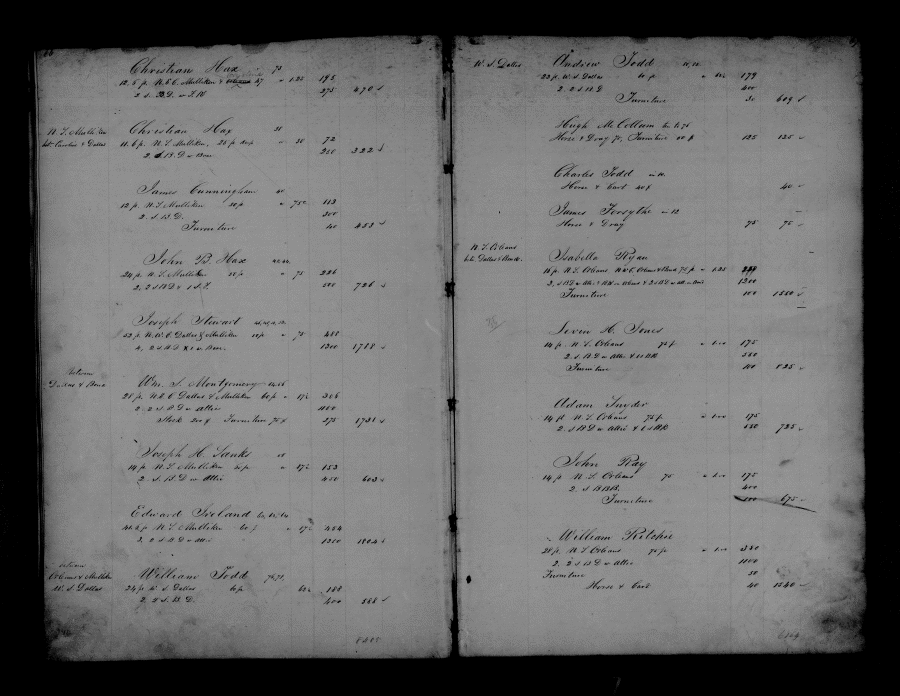 Christian Hax
12.6 p. N.E.C. Mulliken & 47 1.25 195
2 s. B.D. 275 470
N.S. Mulliken
Christian Hax 30
bet. & Dallas 11.6 p. N.S. Mulliken, 50 72
2 s B.D. 250 322
James Cunningham
12 p. N.S. Mulliken 50 p 113
2 s. B.D. 300
Furniture 40 453
John B. Hax
24 p. N.S. Mulliken 50 p 75 226
2, 2 s B D & 1 s. F. 500 726
Joseph Stewart
52 p. N.W.C. Dallas & Mulliken 50 p 75 488
4, 2 s B.D 1300 1788
Between
Dallas & Bond
Wm. S. Montgomery 14.16
28 p. N.E.C. Dallas & Mulliken 60 p 17½ 306
2, 2 s B D w Attic 1100
Stock 200 & Furniture 75 275 1731
Joseph H. Sanks
14 p. N.S. Mulliken 60 p 17½ 153
2 s. B.D. w Attic 450 603
Edward Ireland
N.S. Mulliken 60 p 17½ 454
3, 2 s B D w Attic 1350 1804
between
Orleans & Mulliken
W.S. Dallas
William Todd
24 p. W.S. Dallas 60 p 62½ 188
2, 2 s. B.D. 400 588
8485
W.S. Dallas
Andrew Todd
22 p. W.S. Dallas 60 p 179
2, 2 s B D 400
Furniture 30 609
Hugh McCollum
Horse & Dray 70, Furniture 125 125
Charles Todd
Horse & Cart 40 40
James Forsythe
Horse & Dray 75 75
N.S. Orleans
bet. Dallas & Bond.
Isabella Ryan
16 p. N.S. Orleans N.W.C. Orleans & Bond 75 p 1.25
1200
Furniture 100 1550
Levin H. Jones
14 p. N.S. Orleans 75 p 1.00 175
2 s. B D w Attic & 1 s B.K 550
Furniture 100 825
Adam Snyder
14 p. N.S. Orleans 75 p 1.00 175
2 s B D w Attic & 1 s B.K 550 725
John Ray
14 p. N.S. Orleans 75 1.00 175
2 s B.B.B. 400
Furniture 100 675
William Ritchie
28 p. N.S. Orleans 75 p 1.00 350
2, 2 s B D w Attic 1100
Furniture 50
Horse & Cart 40 1540